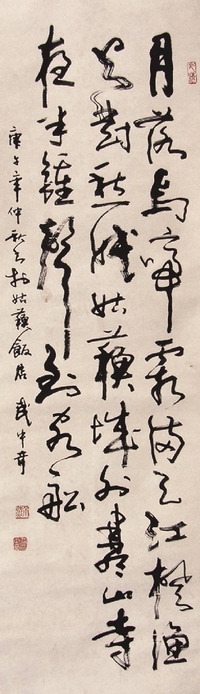 月落烏啼霜滿天江楓漁
火對愁眠姑蘇城外寒山寺
夜半鐘聲到客船
庚午年仲秋書於姑蘇飯店 武中奇